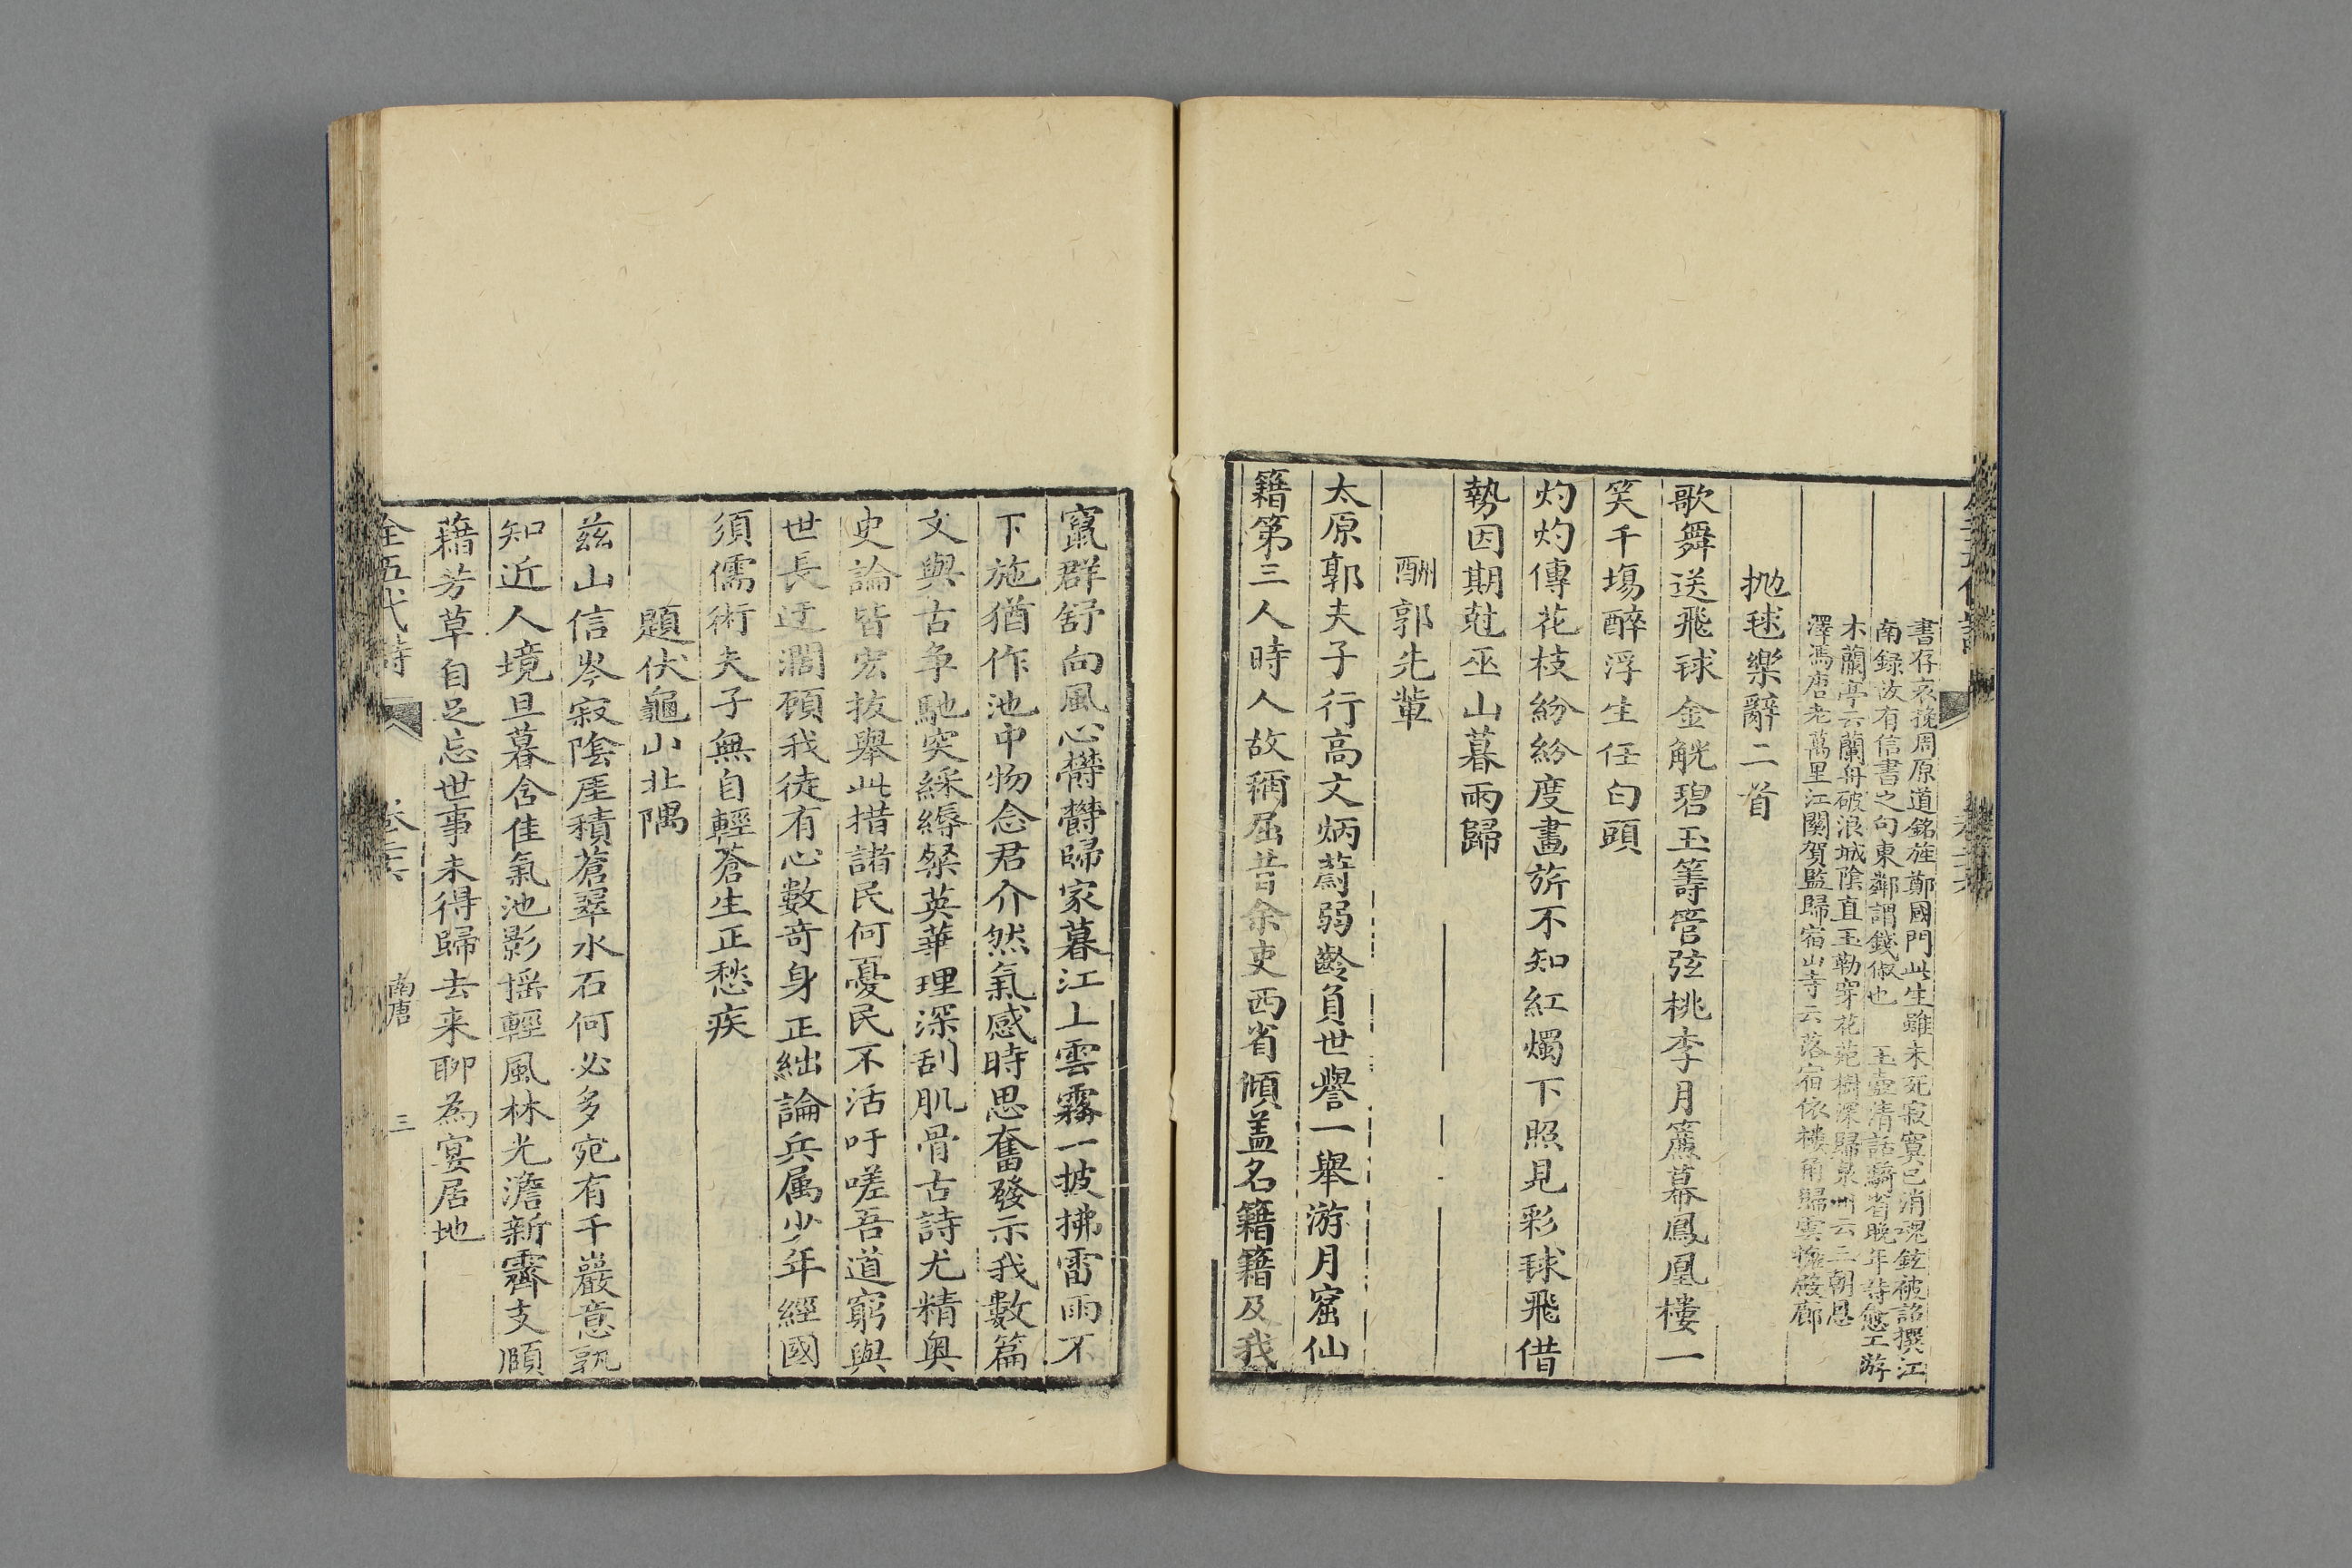 書存哀挽周原道銘旌鄭國門此生雖未死寂寞已消魂鉉被詔撰江
南録汝有信書之句東鄰謂錢俶也　玉壺清話騎省晚年詩愈工游
木蘭亭云蘭舟破浪城隂直玉勒穿花苑樹深歸泉州云三朝恩
澤馮唐老萬里江関賀監歸宿山寺云落宿依樓角歸雲擁殿廊
抛毬樂辭二首
歌舞送飛毬金觥碧玉籌管弦桃李月簾幕鳳凰樓一
笑千塲醉浮生任白頭
灼灼傳花枝紛紛度畫旂不知紅燭下照見彩毬飛借
勢因期尅巫山暮雨歸
酬郭先輩
太原郭夫子行高文炳蔚弱齡負世譽一舉游月窟仙
籍第三人時人故稱屈昔余吏西省傾盖名籍籍及我
竄群舒向風心欝欝歸家暮江上雲霧一披拂雷雨不
下施猶作池中物念君介然氣感時思奮發示我數篇
文與古争馳突綵縟粲英華理深刮肌骨古詩尤精奥
史論皆宏抜舉此措諸民何憂民不活吁嗟吾道窮與
世長迂濶顧我徒有心數竒身正絀論兵属少年經國
須儒術夫子無自輕蒼生正愁疾
題伏龜山北隅
茲山信岑寂隂崖積蒼翠水石何必多宛有千巖意孰
知近人境旦暮含佳氣池影摇輕風林光澹新霽支頤
藉芳草自足忘世事未得歸去来聊為宴居地
全五代詩　卷　南唐　三